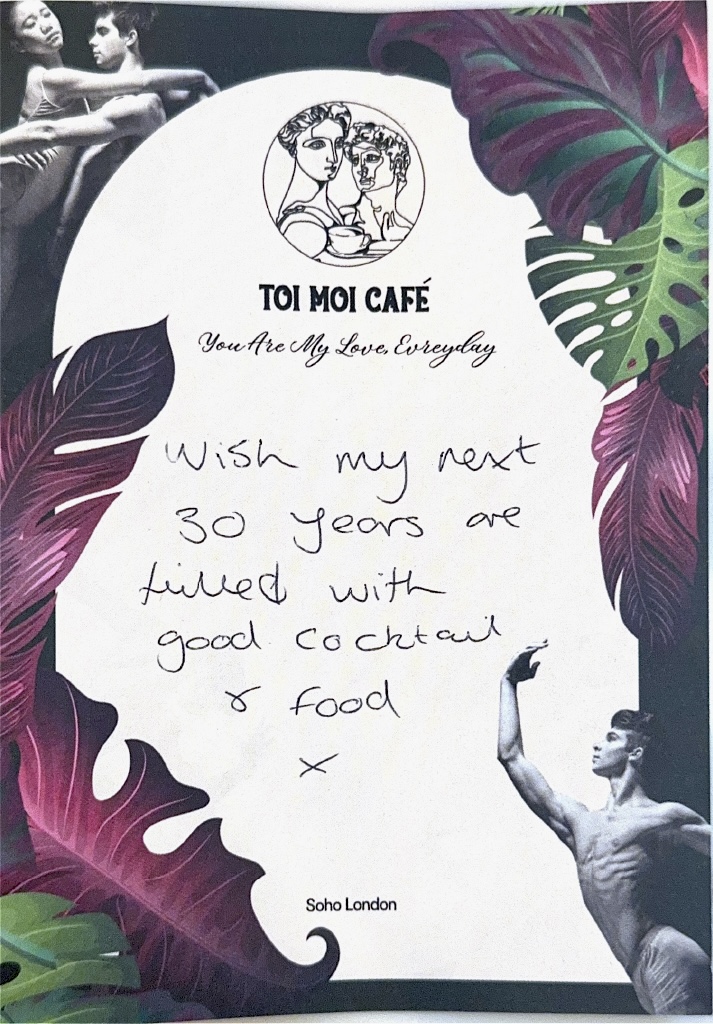 TOI MOI CAFÉ
You Are My Love, Evreyday
Wish my next
30 years are
filled with
good cocktail
& food
x
Soho London